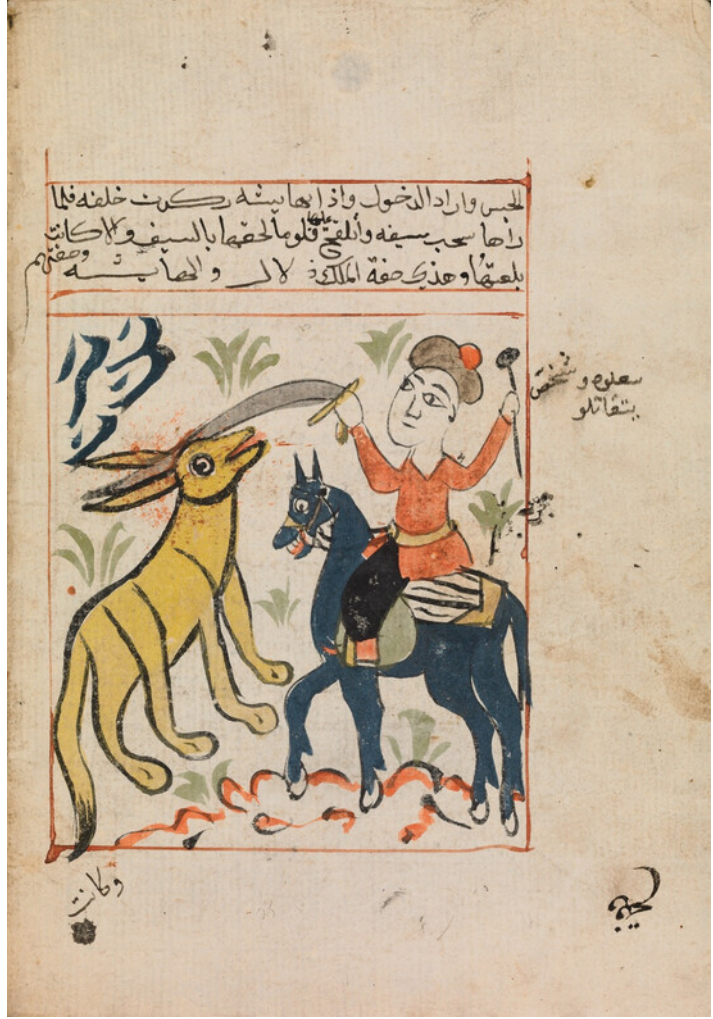 الحبس واراد الدخول واذا بهايشه ركدت خلفه فلما
راها سحب سيفه وأتلقح عليها قلوما لحقها بالسيف والا كانت
بلعتها وهذي صفة الملك لال والهايشه وصفتهم
شخص و
يتقاتلو
وكانت